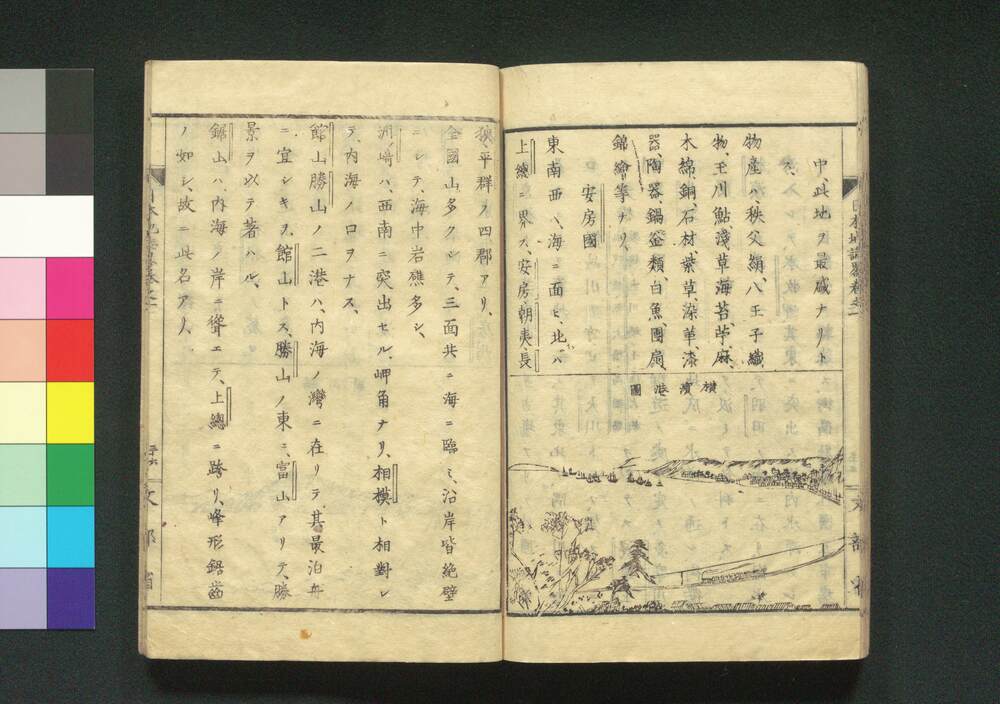 中、此地ヲ最盛ナリトス、
物産ハ、秩父絹、八王子織物、王川鮎、淺草海苔、苧、麻、
木綿、銅、石材、紫草、染革、漆器、陶器、鍋釜類、白魚、團扇、
錦繪等ナリ、
安房國
東南西ハ、海ニ面シ、北ハ
上總ニ界ス、安房、朝夷、長
横濱港圖
狹、平群ノ四郡アリ、
全國山多クシテ、三面共ニ海ニ臨ミ、沿岸皆絶壁
ニシテ、海中岩礁多シ、
洲崎ハ、西南ニ突出セル、岬角ナリ、相模ト相對シ
テ、内海ノ口ヲナス、
館山勝山ノ二港ハ、内海ノ灣ニ在リテ、其最泊舟
ニ宜シキヲ、館山トス、勝山ノ東ニ、富山アリテ、勝
景ヲ以テ著ハル、
鋸山ハ、内海ノ岸ニ聳エテ、上總ニ跨リ、峰形鋸齒
ノ如シ、故ニ此名アリ、
文部省